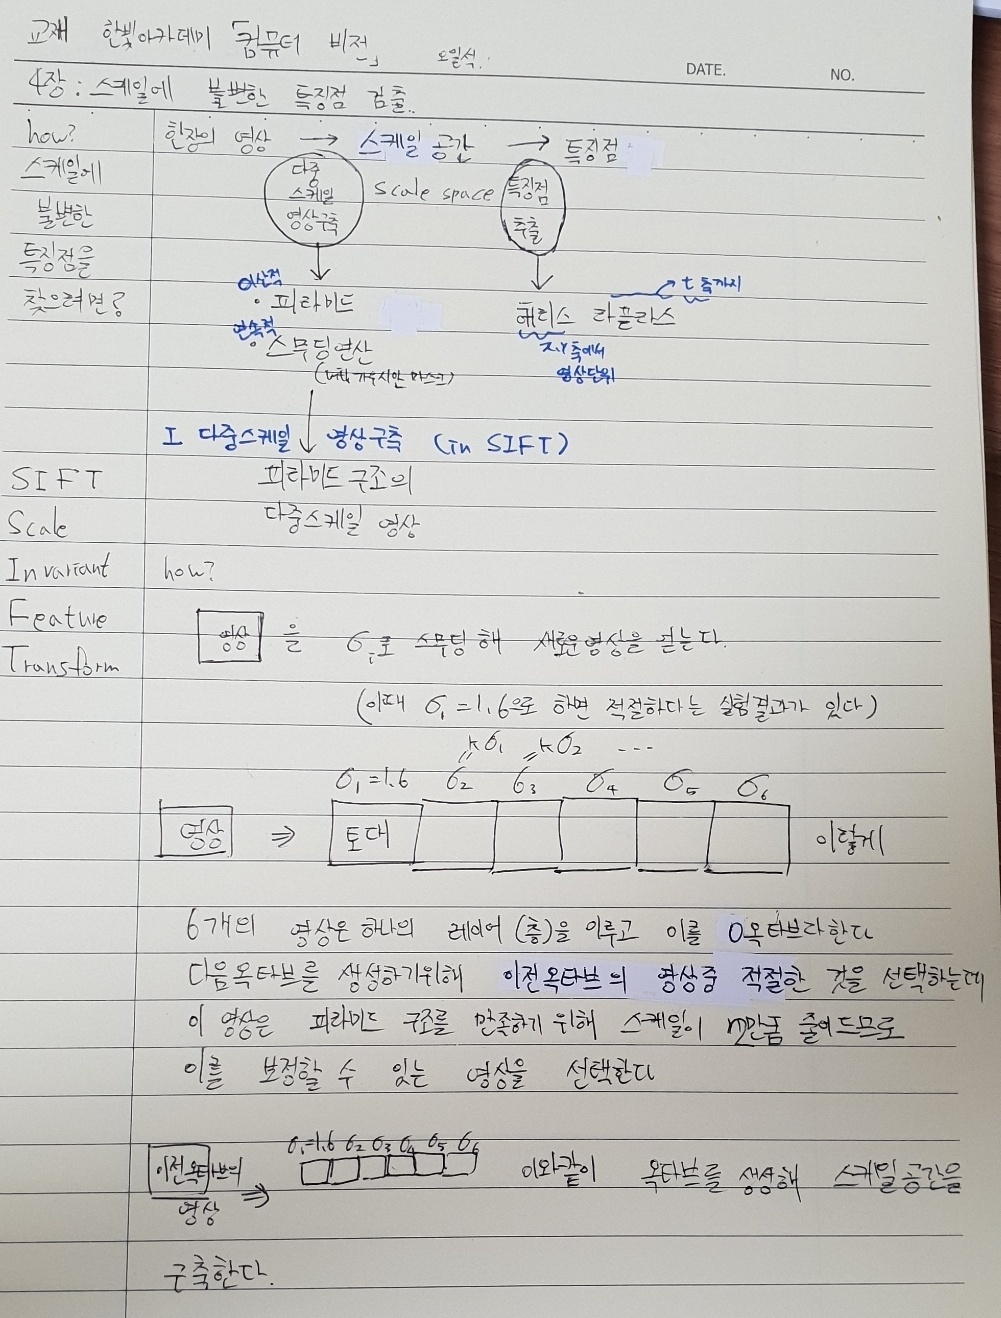 교재 한빛아카데미 「컴퓨터 비전」 오일석.
DATE. NO.
4장 : 스케일에 불변한 특징점 검출..
how? 한장의 영상 → 스케일 공간 → 특징점
스케일에 다중 스케일 영상구축 Scale space 특징점 추출
불변한
특징점을
찾으려면?
이산적
· 피라미드
연속적
· 스무딩연산
해리스 라플라스
t 축까지
x,y축에서
영상단위
I 다중스케일 영상구축 (in SIFT)
SIFT 피라미드 구조의
Scale 다중스케일 영상
Invariant how?
Feature 영상 을 σ₁로 스무딩해 새로운영상을 얻는다.
Transform
(이때 σ₁=1.6으로 하면 적절하다는 실험결과가 있다)
kσ₁ kσ₂ ----
σ₁=1.6 σ₂ σ₃ σ₄ σ₅ σ₆
영상 ⇒ 토대 이렇게
6개의 영상은 하나의 레이어 (층)을 이루고 이를 0옥타브라한다
다음옥타브를 생성하기위해 이전옥타브의 영상중 적절한 것을 선택하는데
이 영상은 피라미드 구조를 만족하기 위해 스케일이 ½만큼 줄어드므로
이를 보정할 수 있는 영상을 선택한다
σ₁=1.6 σ₂ σ₃ σ₄ σ₅ σ₆
이전옥타브의 영상 ⇒ 이와같이 옥타브를 생성해 스케일공간을
구축한다.